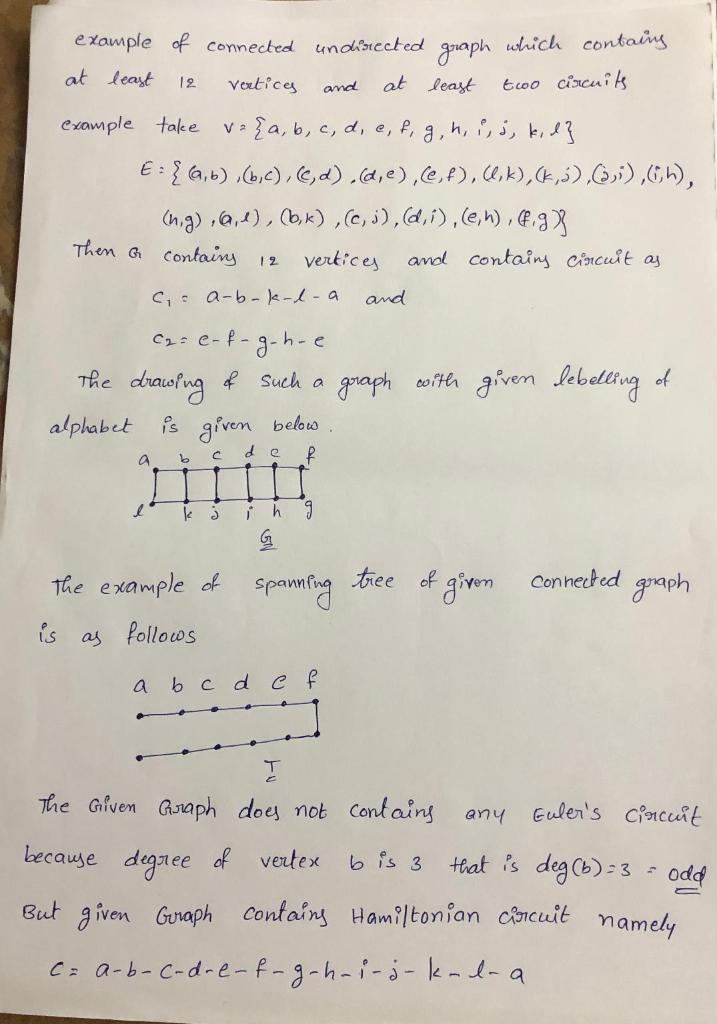 example of connected undirected graph which contains
at least 12 vertices and at least two circuits
example take v = {a, b, c, d, e, f, g, h, i, j, k, l}
E = { (a,b), (b,c), (c,d), (d,e), (e,f), (l,k), (k,j), (j,i), (i,h),
(h,g), (a,l), (b,k), (c,j), (d,i), (e,h), (f,g)}
Then G contains 12 vertices and contains circuit as
C₁ = a-b-k-l-a and
C2 = e-f-g-h-e
The drawing of such a graph with given lebelling of
alphabet is given below.
a b c d e f
l k j i h g
G
The example of spanning tree of given connected graph
is as follows
a b c d e f
T
The Given Graph does not contains any Euler's Circuit
because degree of vertex b is 3 that is deg(b)=3 = odd
But given Graph contains Hamiltonian circuit namely
C = a-b-c-d-e-f-g-h-i-j-k-l-a